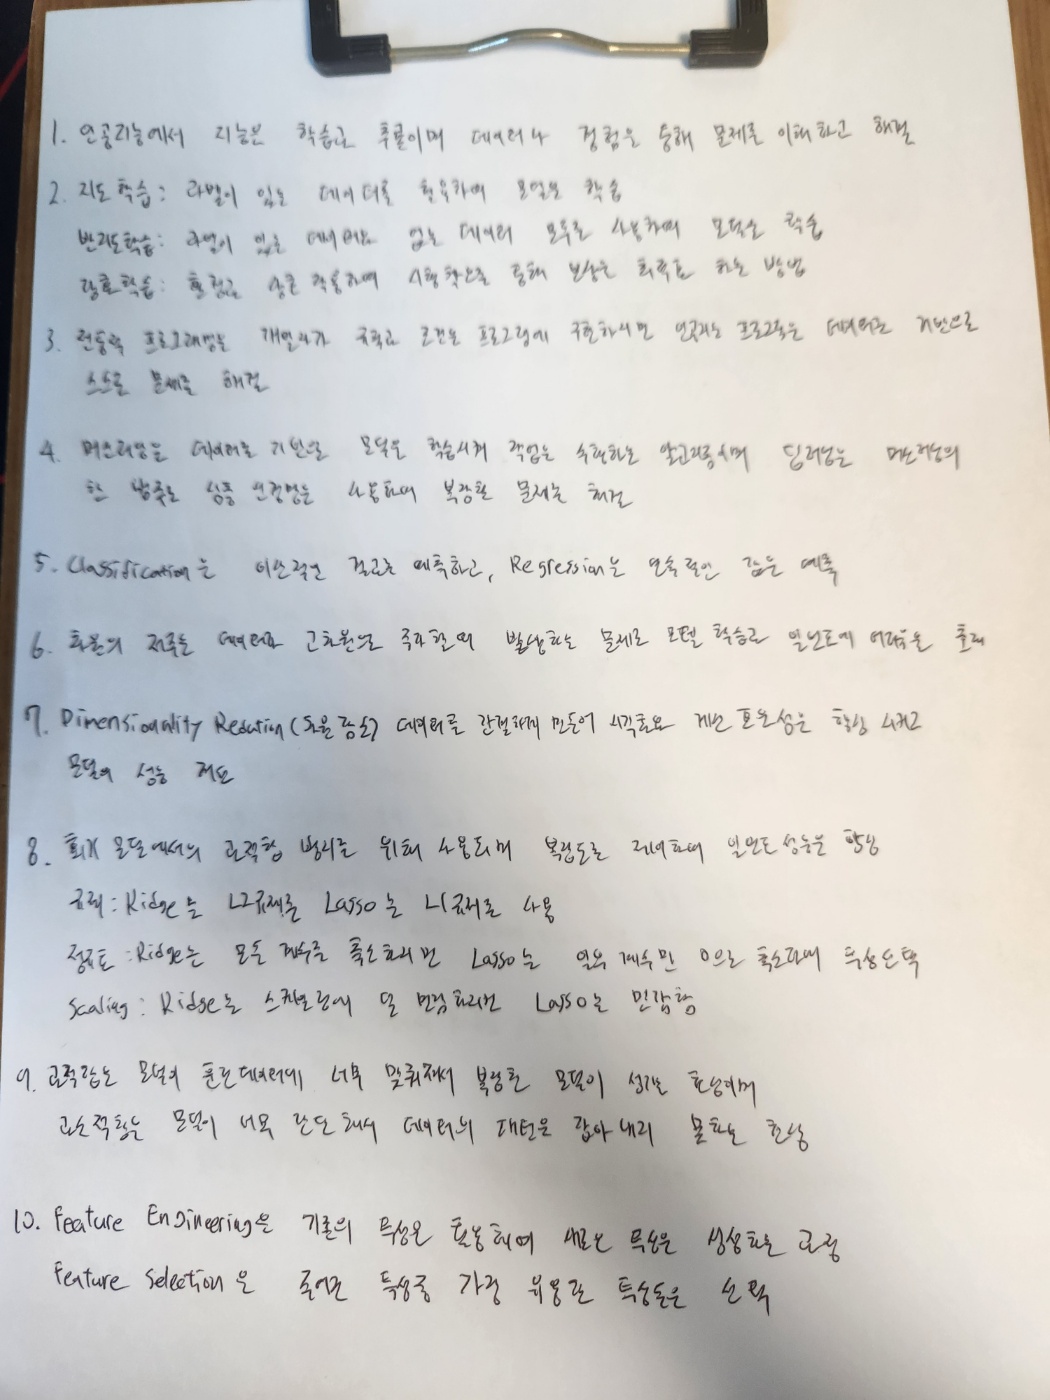 1. 인공지능에서 지능은 학습과 추론이며 데이터나 경험을 통해 문제를 이해하고 해결
2. 지도학습: 라벨이 있는 데이터를 활용하여 모델을 학습
반지도학습: 라벨이 있는 데이터와 없는 데이터 모두를 사용하여 모델을 학습
강화학습: 환경과 상호작용하여 시행착오를 통해 보상을 최대화 하는 방법
3. 전통적 프로그래밍은 개발자가 규칙과 조건을 프로그램에 구현하지만 인공지능 프로그램은 데이터를 기반으로
스스로 문제를 해결
4. 머신러닝은 데이터를 기반으로 모델을 학습시켜 작업을 수행하는 알고리즘이며 딥러닝은 머신러닝의
한 범주로 심층 신경망을 사용하여 복잡한 문제를 해결
5. Classification은 이산적인 결과를 예측하고, Regression은 연속적인 값을 예측
6. 차원의 저주는 데이터가 고차원으로 증가할 때 발생하는 문제로 모델 학습과 일반화에 어려움을 초래
7. Dimensionality Reduction(차원 감소) 데이터를 간결하게 만들어 시각화와 계산 효율성을 향상 시키고
모델의 성능
8. 회귀 모델에서의 과적합 방지를 위해 사용되며 복잡도를 제어하여 일반화 성능을 향상
규제: Ridge는 L2규제를 Lasso는 L1규제를 사용
: Ridge는 모든 계수를 축소하지만 Lasso는 일부 계수만 0으로 축소하여 특성선택
Scaling: Ridge는 스케일링에 덜 민감하지만 Lasso는 민감함
9. 과적합은 모델이 훈련데이터에 너무 맞춰져서 복잡한 모델이 생기는 현상이며
과소적합은 모델이 너무 단순해서 데이터의 패턴을 잡아내지 못하는 현상
10. Feature Engineering은 기존의 특성을 활용하여 새로운 특성을 생성하는 과정
Feature Selection은 주어진 특성중 가장 유용한 특성들을 선택